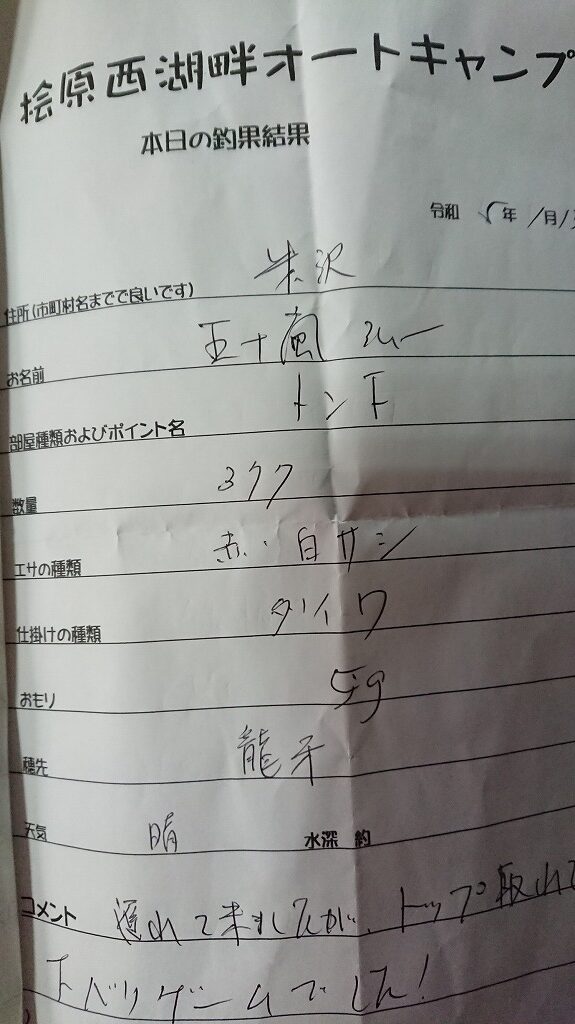 桧原西湖畔オートキャンプ
本日の釣果結果
令和 5年 1月
住所(市町村名までで良いです) 米沢
お名前 五十嵐
部屋種類およびポイント名 トン下
数量 377
エサの種類 赤・白サシ
仕掛けの種類 ダイワ
おもり 5g
穂先 龍牙
天気 晴 水深 約
コメント 遅れて来ましたが、トップ取れて
下バリゲームでした!